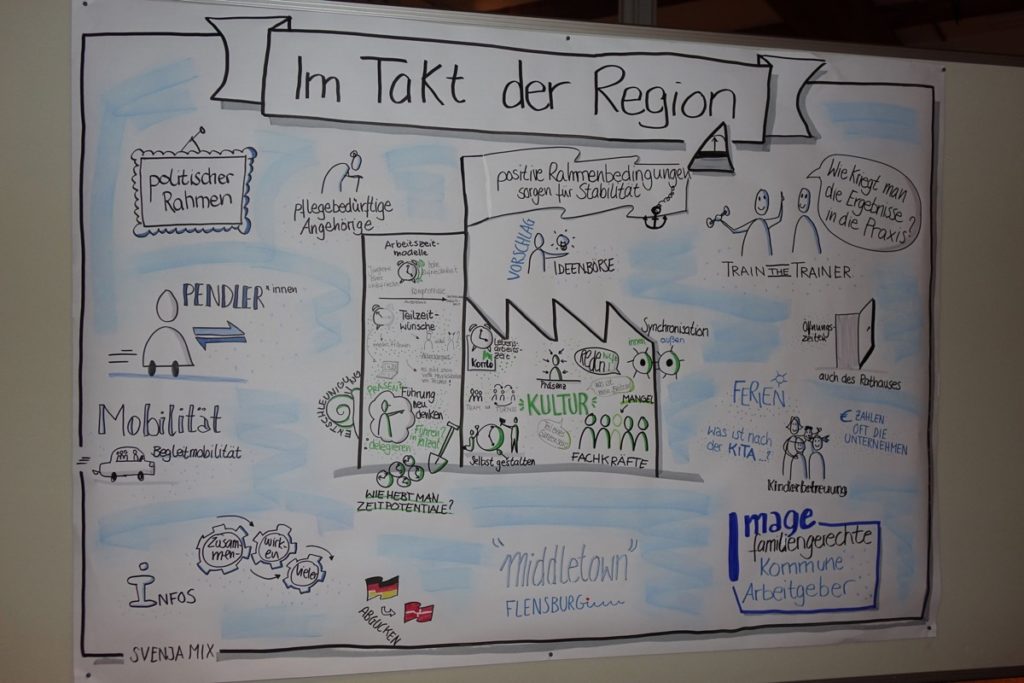 Im Takt der Region
politischer
Rahmen
pflegebedürftige
Angehörige
positive Rahmenbedingungen
sorgen für Stabilität
VORSCHLAG
IDEENBÖRSE
Wie kriegt man
die Ergebnisse
in die Praxis?
TRAIN THE TRAINER
PENDLER*innen
Arbeitszeit-
modelle
Teilzeit-
wünsche
PRÄSENZ?
Führung
neu
denken
delegieren
Führen
in Teilzeit?
ENTSCHLEUNIGUNG
WIE HEBT MAN
ZEITPOTENTIALE?
Lebens-
arbeits-
zeit-
konto
Selbst gestalten
Präsenz
KULTUR
MANGEL
FACHKRÄFTE
Synchronisation
innen
außen
Öffnungs-
zeiten
auch des Rathauses
FERIEN
Was ist nach
der KITA...?
€ ZAHLEN
OFT DIE
UNTERNEHMEN
Kinderbetreuung
Mobilität
Begleitmobilität
Infos
Zusam-
men-
wirk-
en
ABGUCKEN
"Middletown"
FLENSBURG
Image
familiengerechte
Kommune
Arbeitgeber
SVENJA MIX